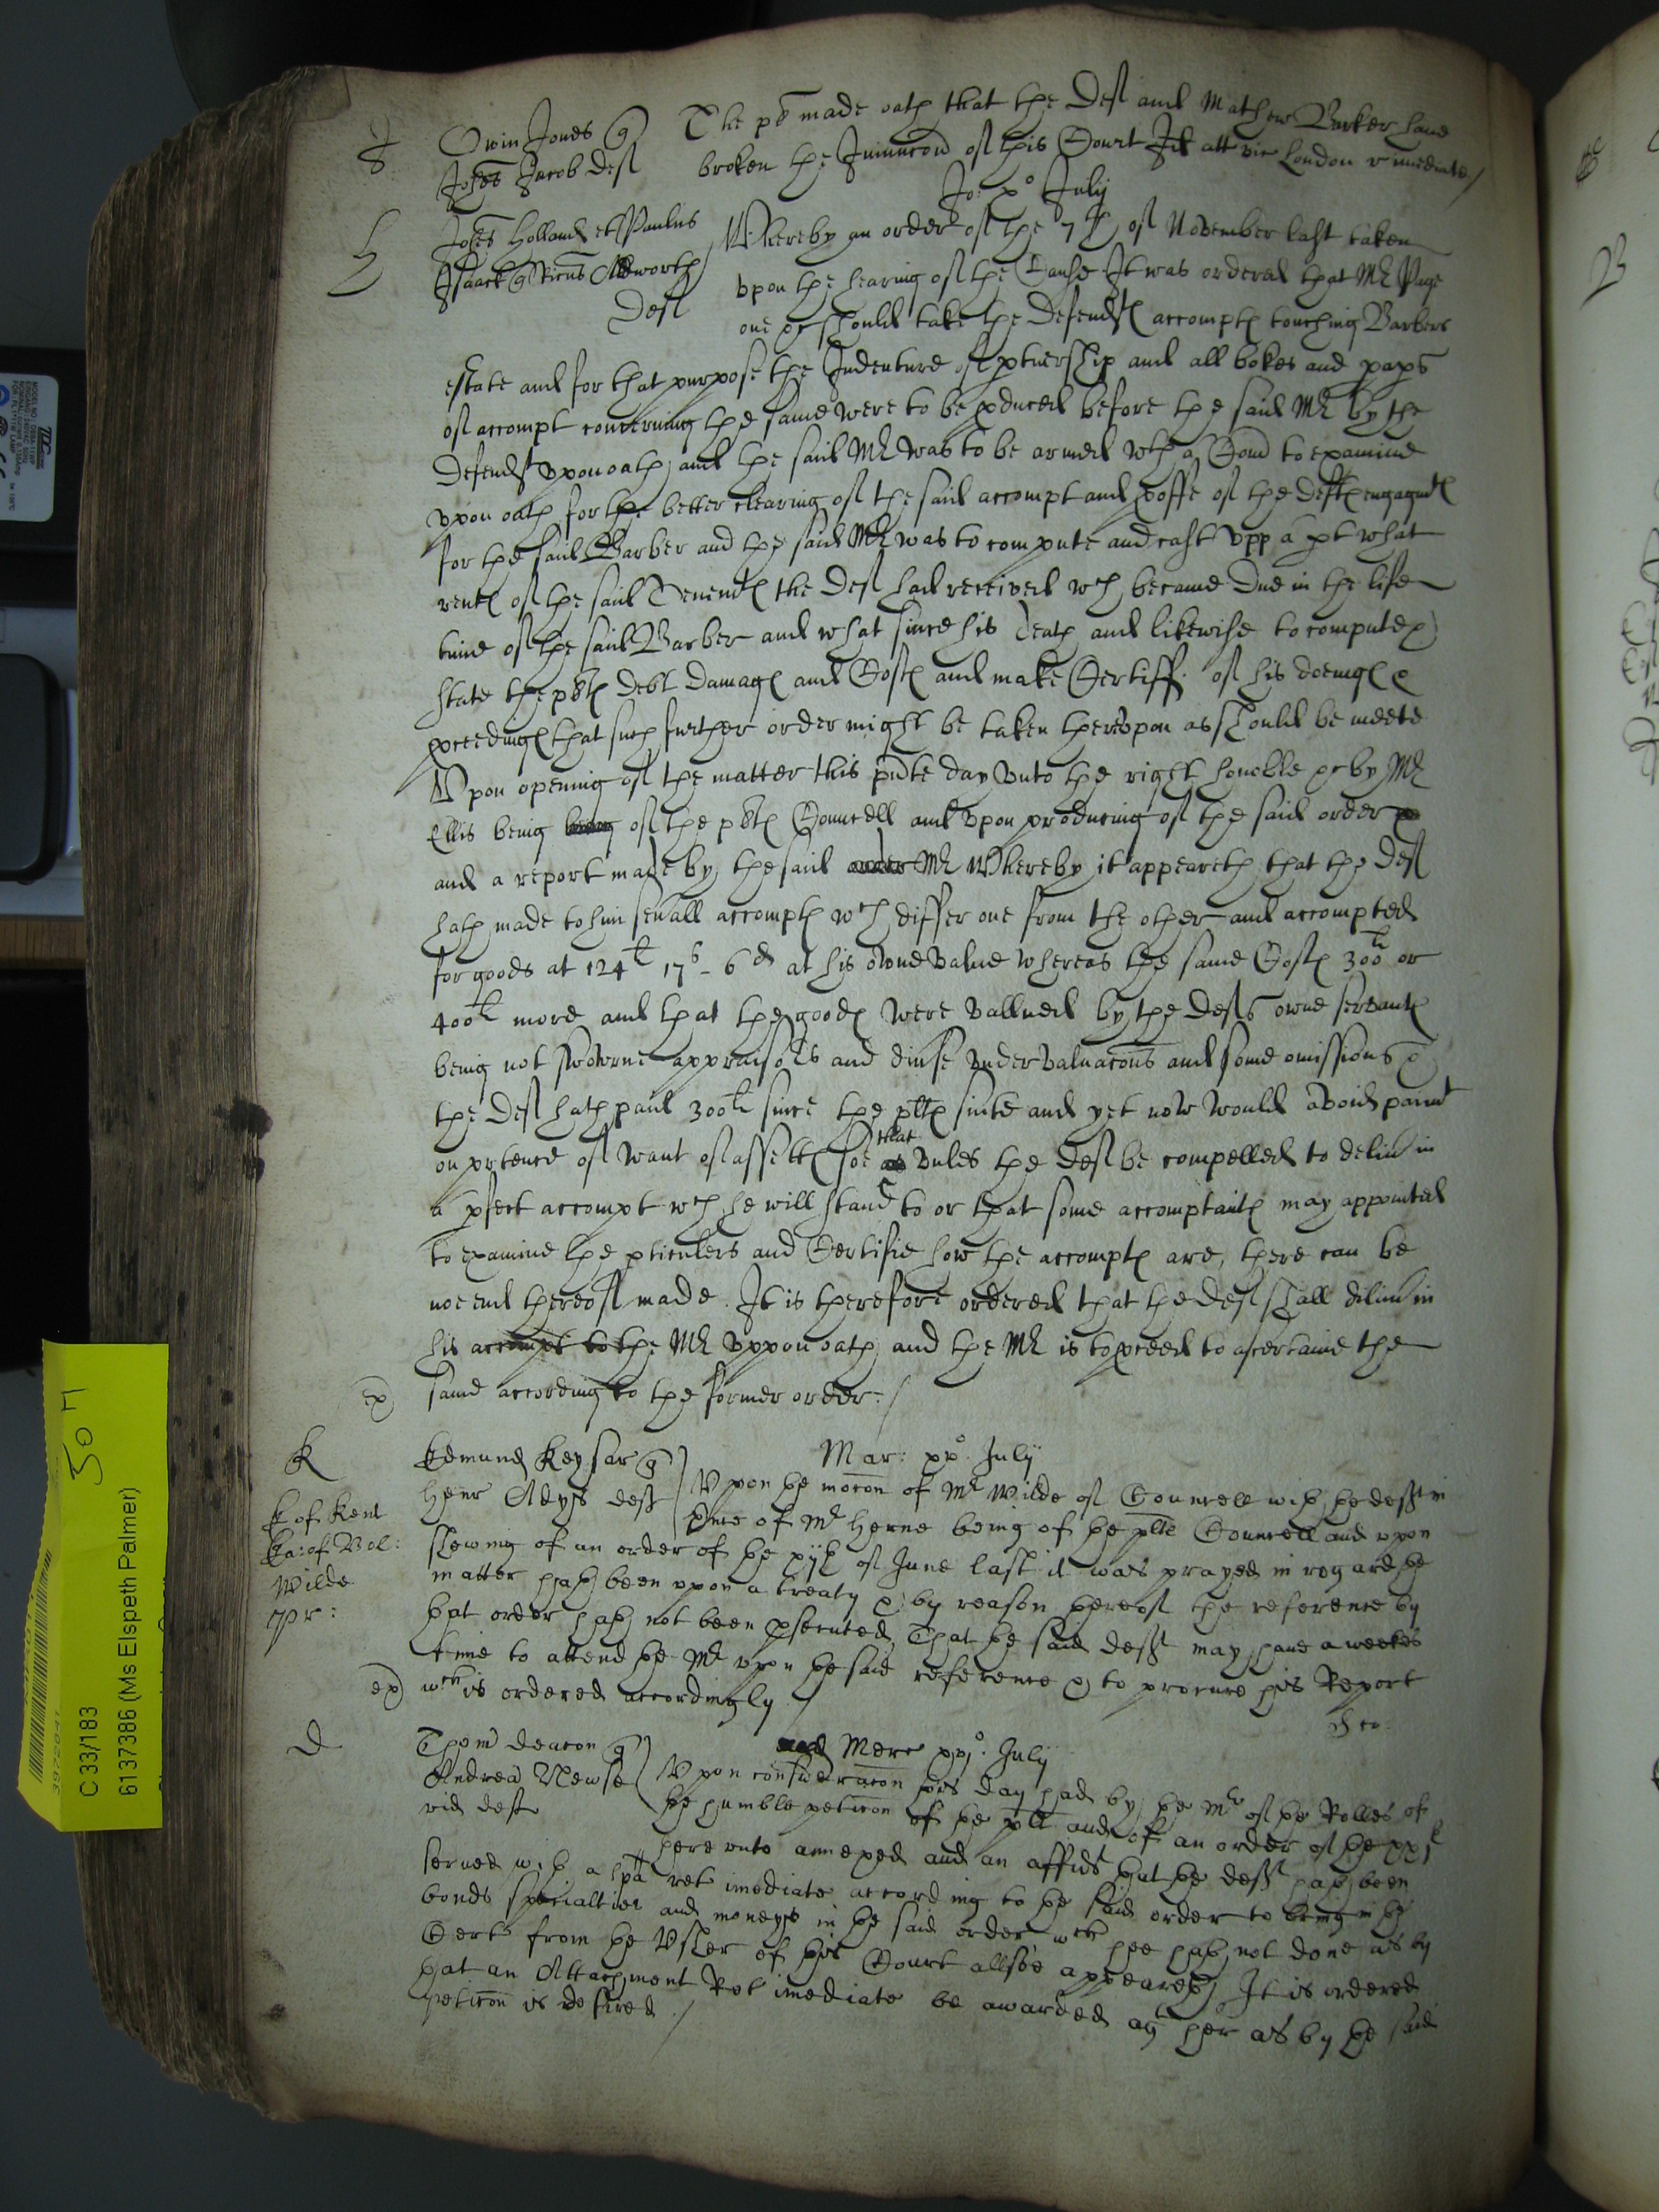 J
Owin Jones q
Johes Jacob def
The pl made oath that the Def and Mathew Barker have
broken the Iniunccon of this Court Jd att vic London r imediate /
Jo: xo July
H
Johes Holland et Paulus
Isaack q Ricus Aldworth
Def
Whereby an order of the 7th of November last taken
vpon the hearing of the Cause It was ordered that Mr Page
one &c should take the Defendts accompts touching Barbers
estate and for that purpose the Indenture of ptnership and all bokes and paps
of accompt concerning the same were to be pduced before the said Mr by the
Defendt vpon oath and the said Mr was to be armed wth a Com to examine
vpon oath for the better clearing of the said accompt and poffe of the defts engagmts
for the said Barber and the said Mr was to compute and cast vpp a pt what
rents of the said Tenemts the Def had received wch became due in the life
time of the said Barber and what since his death and likewise to compute &
state the plts debt damags and Costs and make Certiff. of his doeings &
pceedings that such further order might be taken therevpon as should be meete
Vpon opening of the matter this pnte day vnto the right honoble &c by Mr
Ellis being being of the plts Councell and vpon producing of the said order &
and a report made by the said order Mr Whereby it appeareth that the Def
hath made to him seuall accompts wch differ one from the other and accompted
for goods at 124li 17s - 6d at his owne value whereas the same Costs 300li or
400li more and that the goods were vallued by the Defts owne servants
being not sworne appraisors and diuse vndervaluacons and some omissions &
the Def hath paid 300li since the plts suite and yet now would avoid paimt
on prtence of want of assetts soe as that vnles the def be compelled to deliu in
a pfect accompt wch he will stand to or that some accomptants may appointed
to examine the pticulers and Certifie how the accompts are, there can be
noe end thereof made. It is therefore ordered that the def shall deliu in
his accompt to the Mr vppon oath and the Mr is to pceed to ascertaine the
ex) same according to the former order: /
K
Edmund Keysar q
Henr Adys deft
Mar: xxo. July
E of Kent
Ea: of Bol:
Wilde
pr:
Vpon the mocon of Mr Wilde of Councell with the deft in
pnce of Mr Herne being of the plts Councell and vpon
shewing of an order of the xijth of June last it was prayed in regard the
matter hath been vpon a treaty & by reason thereof the reference by
that order hath not been psecuted, That the said deft may haue a weekes
time to attend the Mr vpon the said reference & to procure his Report
ex) wch is ordered accordingly /
D
Thom Deacon q
Andrea Newse
vid deft
Merc xxjo. July
Vpon consideracon this day had by the Mr of the Rolles of
the humble peticon of the plt and of an order of the xxjth
here vnto annexed and an affidt that the deft hath been
serued with a spa ret imediate according to the said order to bring in the
bonds specialties and moneys in the said order wch shee hath not done as by
Cert from the Vsher of this Court allsoe appeareth It is ordered
that an Attachment Ret imediate be awarded agt her as by the said
peticon is desired /
507
C 33/183
6137386 (Ms Elspeth Palmer)